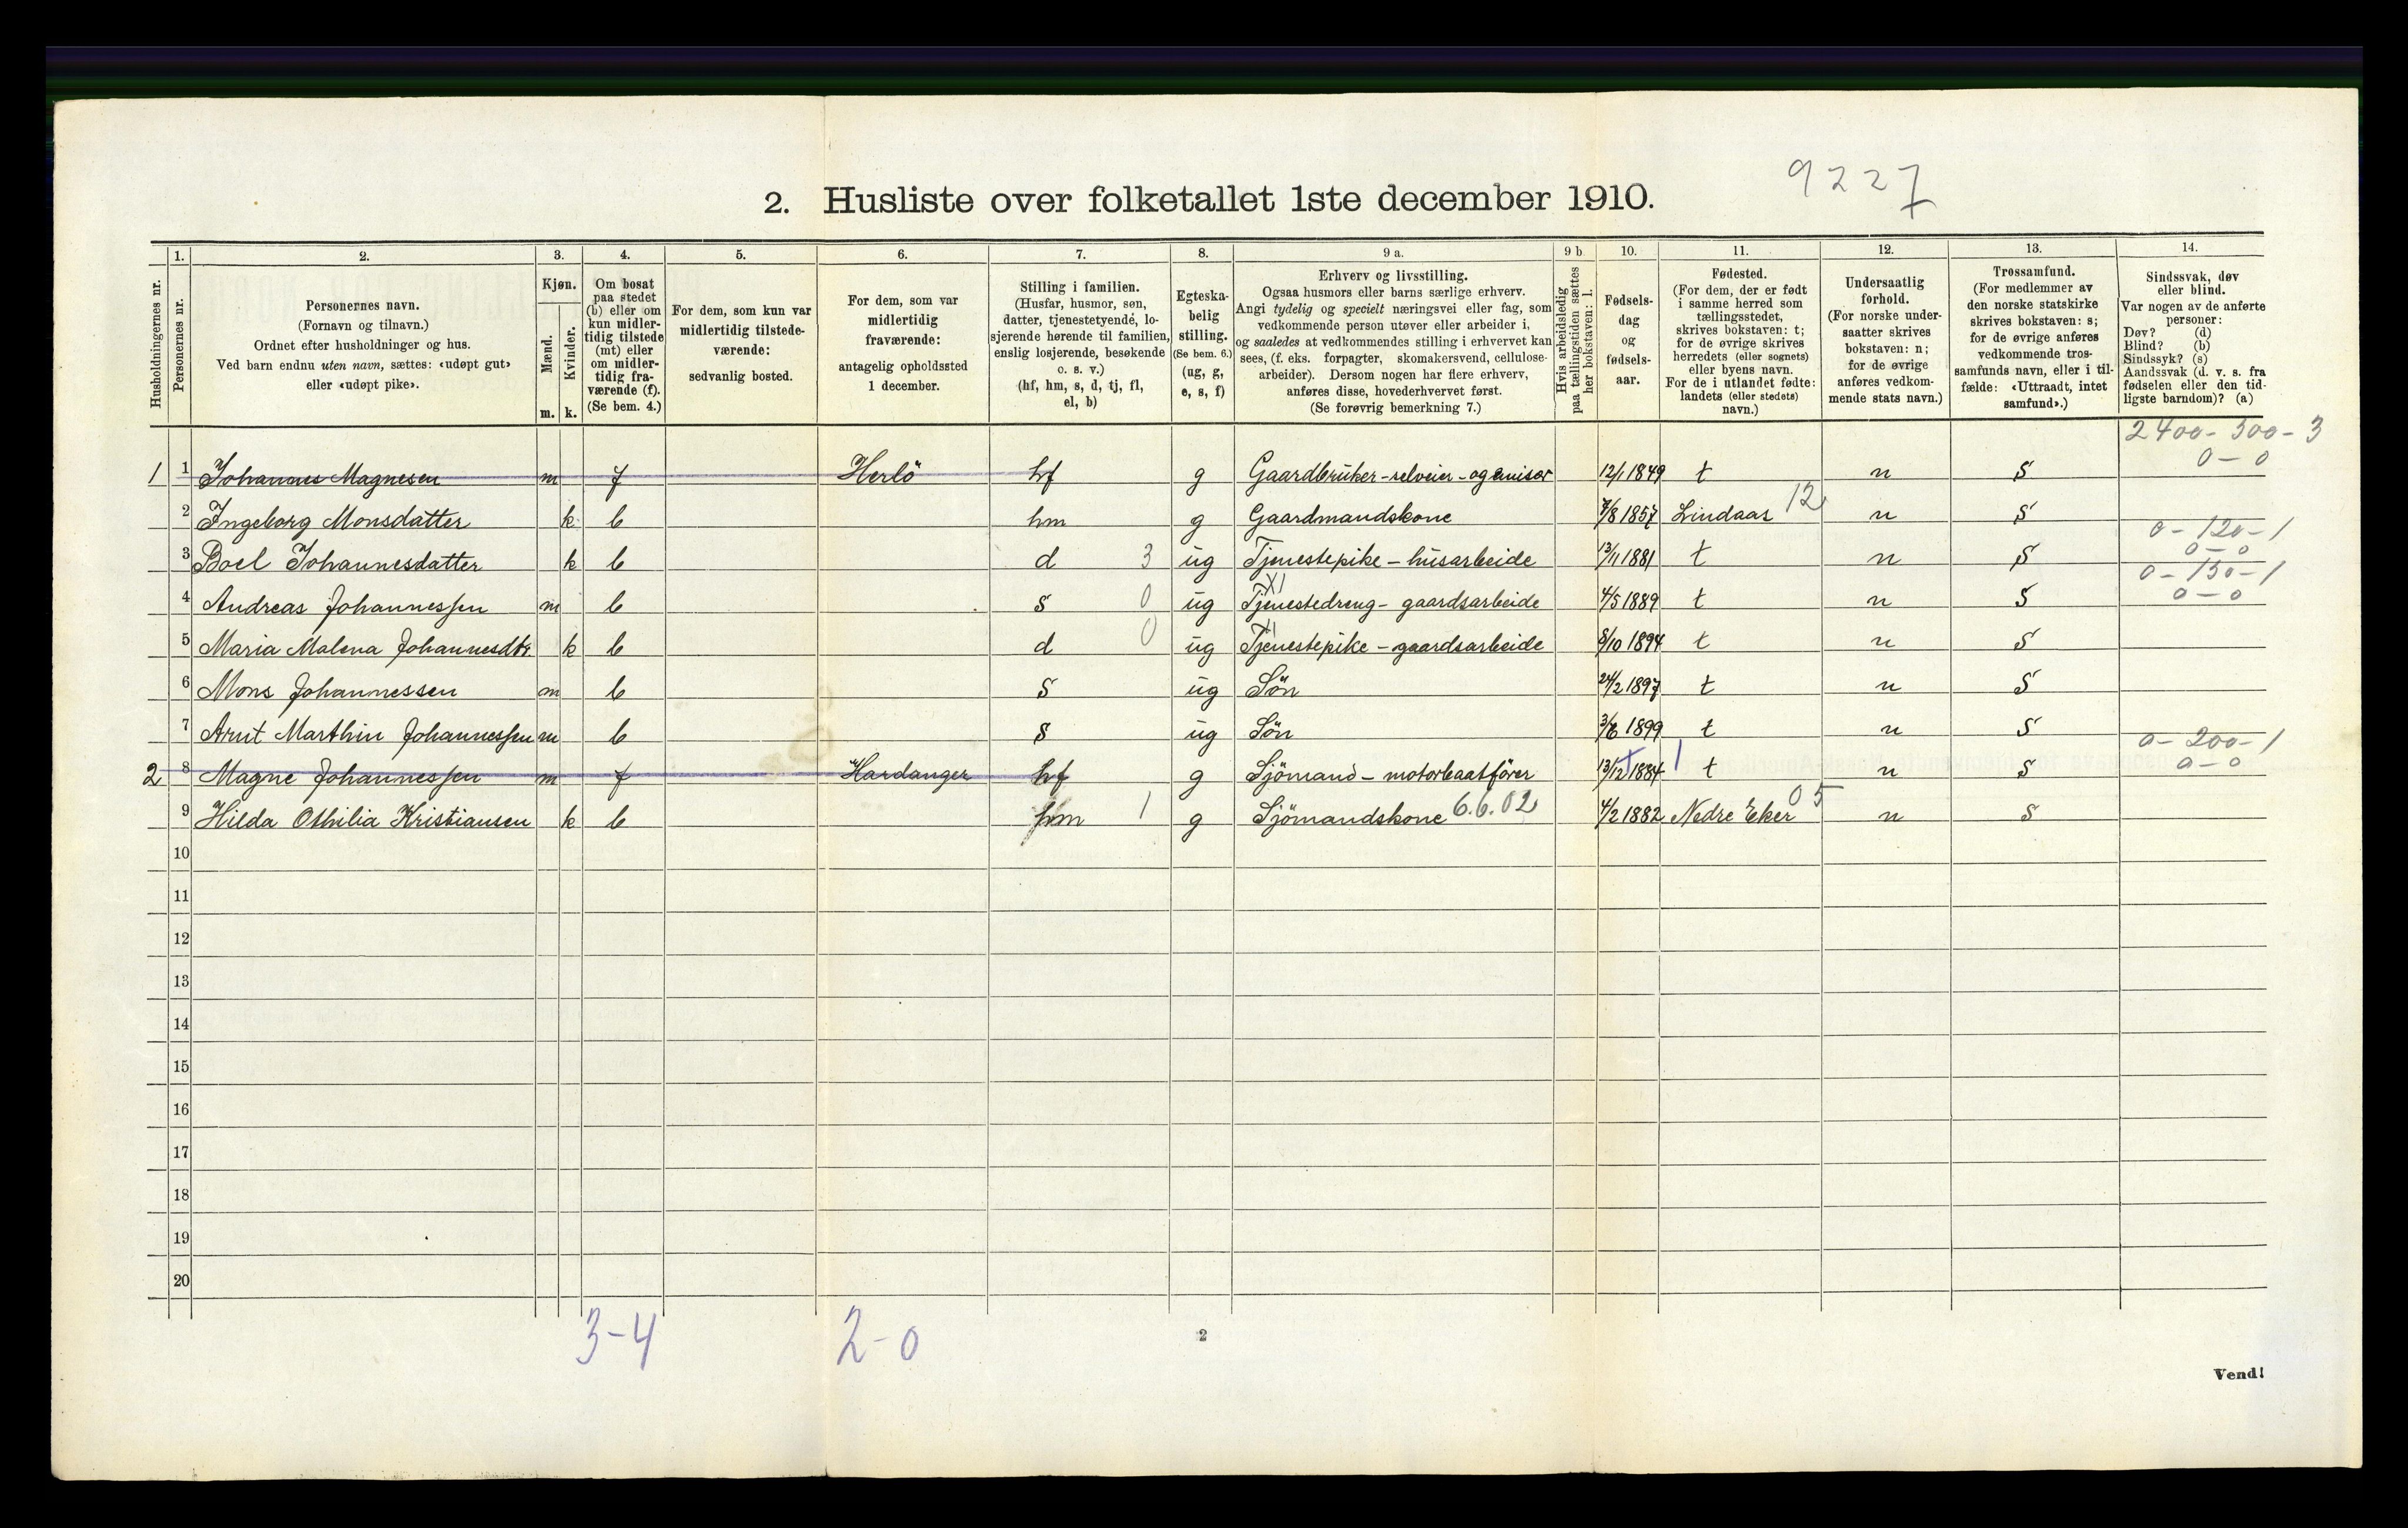 9227
2. Husliste over folketallet 1ste december 1910.
Husholdningernes nr.
1.
Personernes nr.
2.
Personernes navn.
(Fornavn og tilnavn.)
Ordnet efter husholdninger og hus.
Ved barn endnu uten navn, sættes: «udøpt gut»
eller «udøpt pike».
3.
Kjøn.
Mænd.
Kvinder.
m. k.
4.
Om bosat
paa stedet
(b) eller om
kun midler-
tidig tilstede
(mt) eller
om midler-
tidig fra-
værende (f).
(Se bem. 4.)
5.
For dem, som kun var
midlertidig tilstede-
værende:
sedvanlig bosted.
6.
For dem, som var
midlertidig
fraværende:
antagelig opholdssted
1 december.
7.
Stilling i familien.
(Husfar, husmor, søn,
datter, tjenestetyende, lo-
sjerende hørende til familien,
enslig losjerende, besøkende
o. s. v.)
(hf, hm, s, d, tj, fl,
el, b)
8.
Egteska-
belig
stilling.
(Se bem. 6.)
(ug, g,
e, s, f)
9 a.
Erhverv og livsstilling.
Ogsaa husmors eller barns særlige erhverv.
Angi tydelig og specielt næringsvei eller fag, som
vedkommende person utøver eller arbeider i,
og saaledes at vedkommendes stilling i erhvervet kan
sees, (f. eks. forpagter, skomakersvend, cellulose-
arbeider). Dersom nogen har flere erhverv,
anføres disse, hovederhvervet først.
(Se forøvrig bemerkning 7.)
9 b.
Hvis arbeidsledig
paa tællingstiden sættes
her bokstaven: l.
10.
Fødsels-
dag
og
fødsels-
aar.
11.
Fødested.
(For dem, der er født
i samme herred som
tællingsstedet,
skrives bokstaven: t;
for de øvrige skrives
herredets (eller sognets)
eller byens navn.
For de i utlandet fødte:
landets (eller stedets)
navn.)
12.
Undersaatlig
forhold.
(For norske under-
saatter skrives
bokstaven: n;
for de øvrige
anføres vedkom-
mende stats navn.)
13.
Trossamfund.
(For medlemmer av
den norske statskirke
skrives bokstaven: s;
for de øvrige anføres
vedkommende tros-
samfunds navn, eller i til-
fælde: «Uttraadt, intet
samfund».)
14.
Sindssvak, døv
eller blind.
Var nogen av de anførte
personer:
Døv? (d)
Blind? (b)
Sindssyk? (s)
Aandssvak (d. v. s. fra
fødselen eller den tid-
ligste barndom)? (a)
2400-300-3
0-0
1 1 Johannes Magnesen m f Herlö hf g Gaardbruker-selveier-og avisor 12/1 1849 t n S
2 Ingeborg Monsdatter k b hm g Gaardmandskone 7/8 1857 Lindaas 12 n S
0-120-1
0-0
3 Boel Johannesdatter k b d 3 ug Tjenestepike - husarbeide 13/11 1881 t n S
0-150-1
0-0
4 Andreas Johannessen m b s 0 ug Tjenestedreng - gaardsarbeide XI 4/5 1889 t n S
5 Maria Malena Johannesdtr k b d 0 ug Tjenestepike - gaardsarbeide XI 8/10 1894 t n S
6 Mons Johannessen m b s ug Sön 24/2 1897 t n S
7 Arnt Marthin Johannessen m b s ug Sön 3/6 1899 t n S
0-200-1
0-0
2 8 Magne Johannessen m f Hardanger hf g Sjömand - motorbaatförer 13/12 1884 1 t n S
9 Hilda Othilia Kristiansen k b hm 1 g Sjömandskone 6.6.02 4/2 1882 Nedre Eker 05 n S
10
11
12
13
14
15
16
17
18
19
20
3-4 2-0
2
Vend!